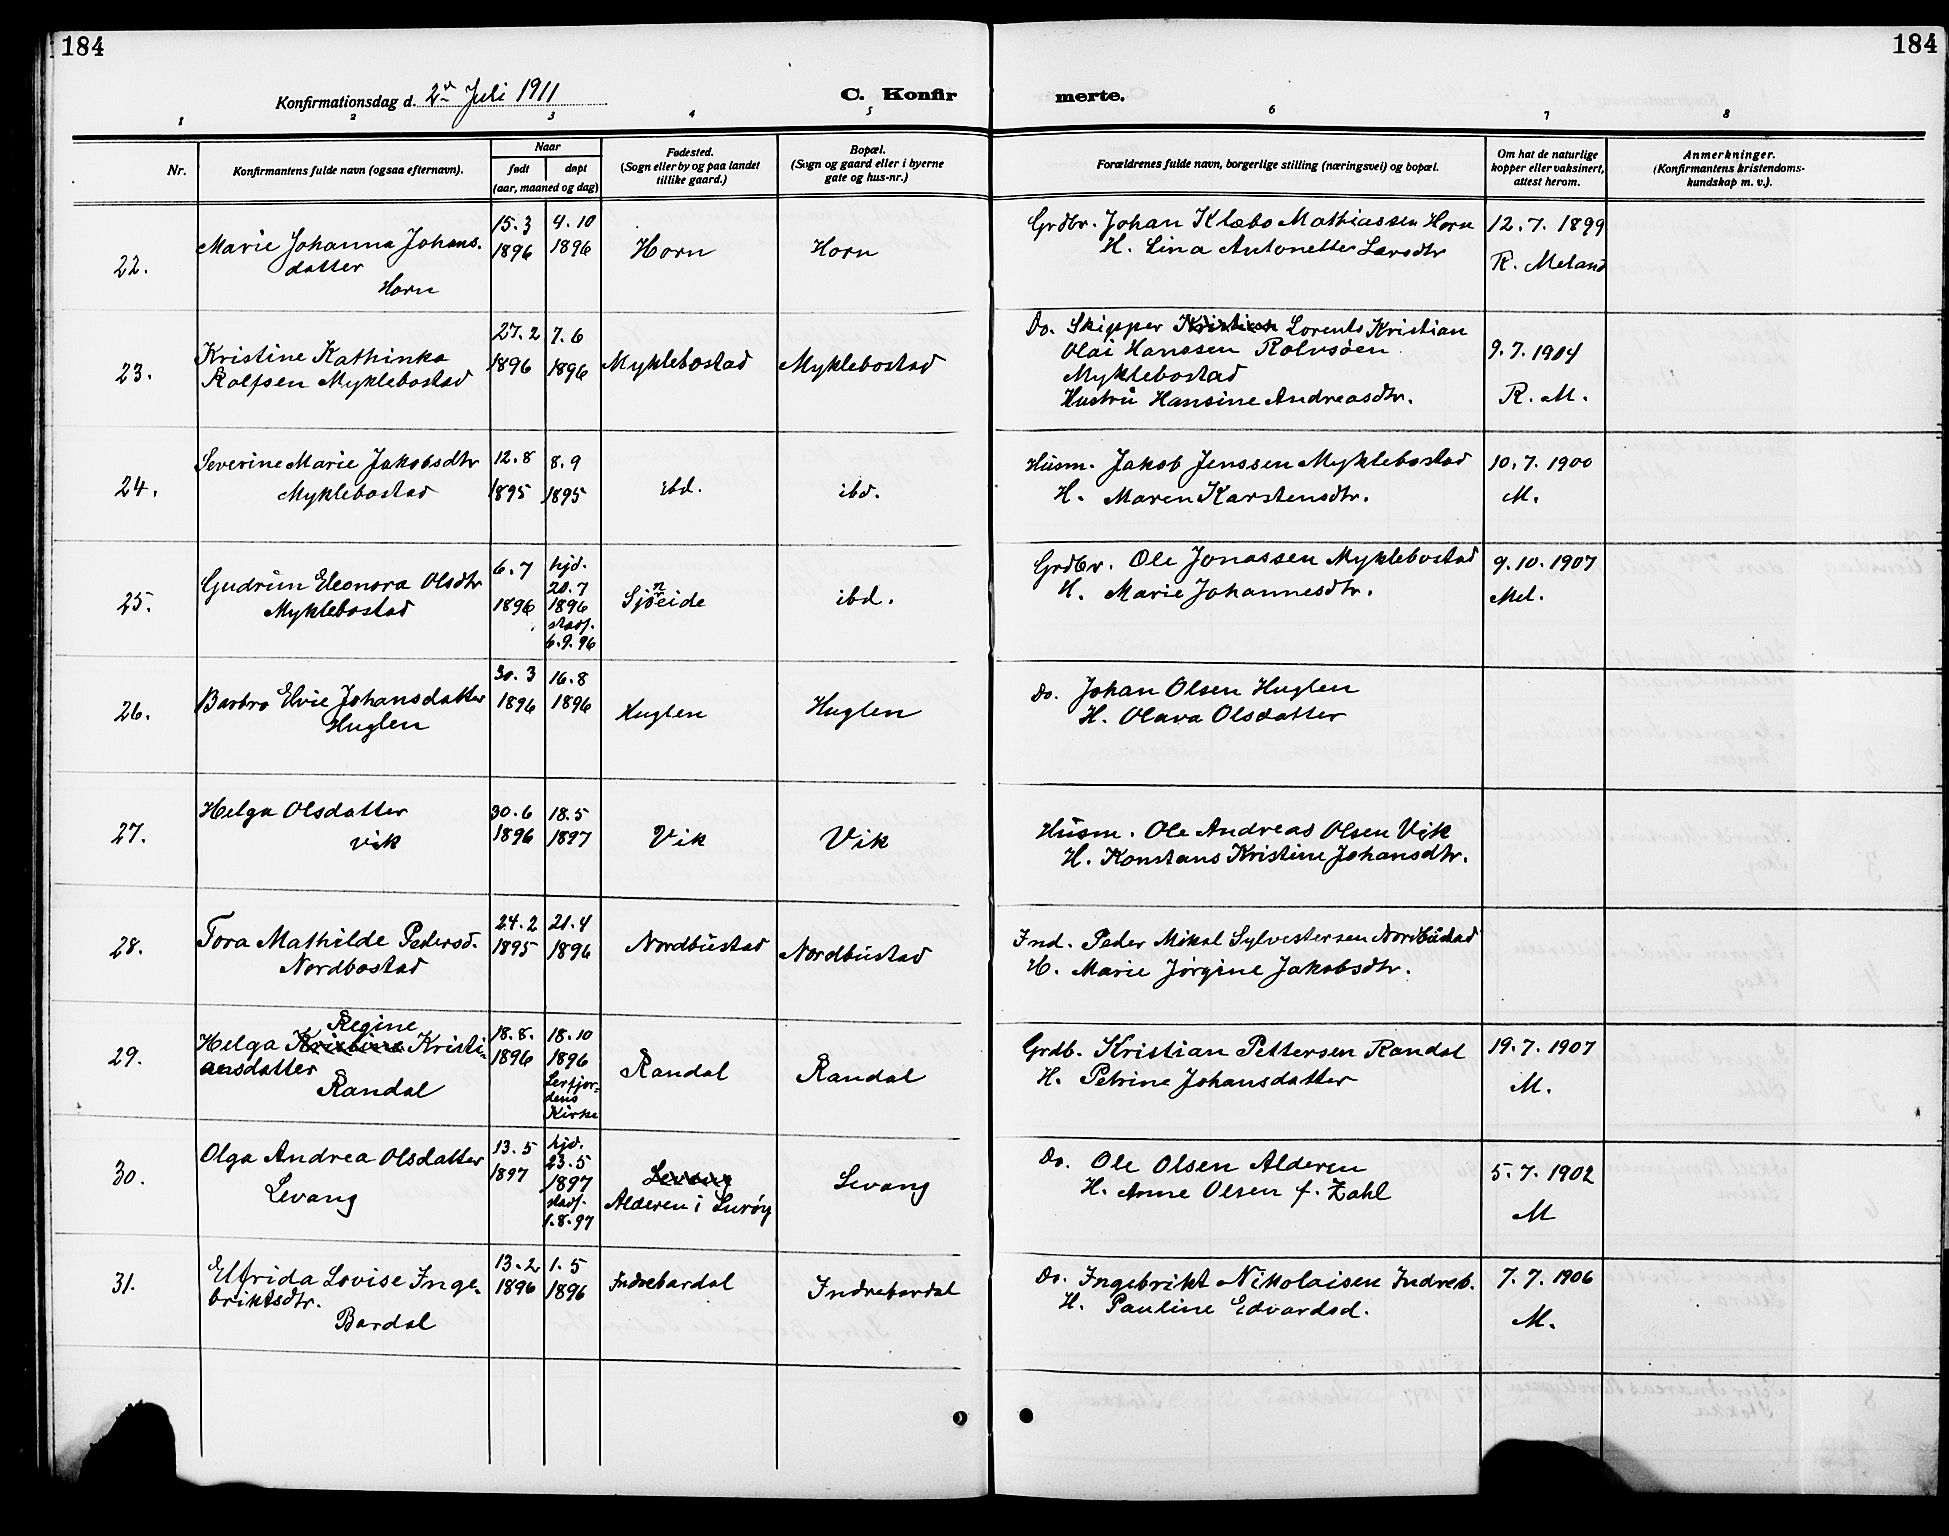 184
184
Konfirmationsdag d. 2d Juli 1911
C. Konfir
merte.
1 2 3 4 5 6 7 8
Nr.
Konfirmantens fulde navn (ogsaa efternavn).
Naar
født
døpt
(aar, maaned og dag)
Fødested.
(Sogn eller by og paa landet
tillike gaard.)
Bopæl.
(Sogn og gaard eller i byerne
gate og hus-nr.)
Forældrenes fulde navn, borgerlige stilling (næringsvei) og bopæl.
Om hat de naturlige
kopper eller vaksinert,
attest herom.
Anmerkninger.
(Konfirmantens kristendoms-
kundskap m. v.).
22.
Marie Johanna Johans-
datter
Horn
15.3
1896
4.10
1896
Horn
Horn
Grdbr. Johan Klæbo Mathiassen Horn
H. Lina Antonette Larsdtr
12.7.1899
R. Meland
23.
Kristine Kathinka
Rolfsen Myklebostad
27.2
1896
7.6
1896
Myklebostad
Myklebostad
Do. Skipper Kristian Lorents Kristian
Olai Hanssen Rolvsøen
Myklebostad
Hustru Hansine Andreasdtr.
9.7.1904
R. M.
24.
Severine Marie Jakobsdtr
Myklebostad
12.8
1895
8.9
1895
ibd.
ibd.
Husm. Jakob Jenssen Myklebostad
H. Maren Karstensdtr.
10.7.1900
M.
25.
Gudrun Eleonora Olsdtr
Myklebostad
6.7
1896
hjd.
20.7
1896
stadf.
6.9.96
Sjøneide
ibd.
Grdbr. Ole Jonassen Myklebostad
H. Marie Johannesdtr.
9.10.1907
Mel.
26.
Barbro Elvie Johansdatter
Huglen
30.3
1896
16.8
1896
Huglen
Huglen
Do. Johan Olsen Huglen
H. Olava Olsdatter
27.
Helga Olsdatter
Vik
30.6
1896
18.5
1897
Vik
Vik
Husm. Ole Andreas Olsen Vik
H. Konstans Kristine Johansdtr.
28.
Tora Mathilde Pedersd.
Nordbostad
24.2
1895
21.4
1896
Nordbustad
Nordbustad
Ind. Peder Mikal Sylvestersen Nordbustad
H. Marie Jørgine Jakobsdtr.
29.
Regine
Helga Kristine Kristi-
ansdatter
Randal
18.8.
1896
18.10
1896
Leirfjor-
dens
Kirke
Randal
Randal
Grdb. Kristian Pettersen Randal
H. Petrine Johansdatter
19.7.1907
M.
30.
Olga Andrea Olsdatter
Levang
13.5
1897
hjd.
23.5
1897
stadf.
1.8.97
Levang
Alderen i Lurøy
Levang
Do. Ole Olsen Alderen
H. Anne Olsen f. Zahl
5.7.1902
M
31.
Elfrida Lovise Inge-
briktsdtr.
Bardal
13.2
1896
1.5
1896
Indrebardal
Indrebardal
Do. Ingebrikt Nikolaisen Indreb.
H. Pauline Edvardsd.
7.7.1906
M.